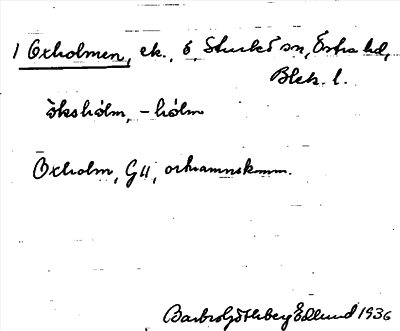 1 Oxholmen, ek., ö, Sturkö sn, Östra hd,
Blek. l.
ökshòlm, -hòlm
Oxholm, GU, ortnamnskomm.
Barbro Götheberg Edlund 1936